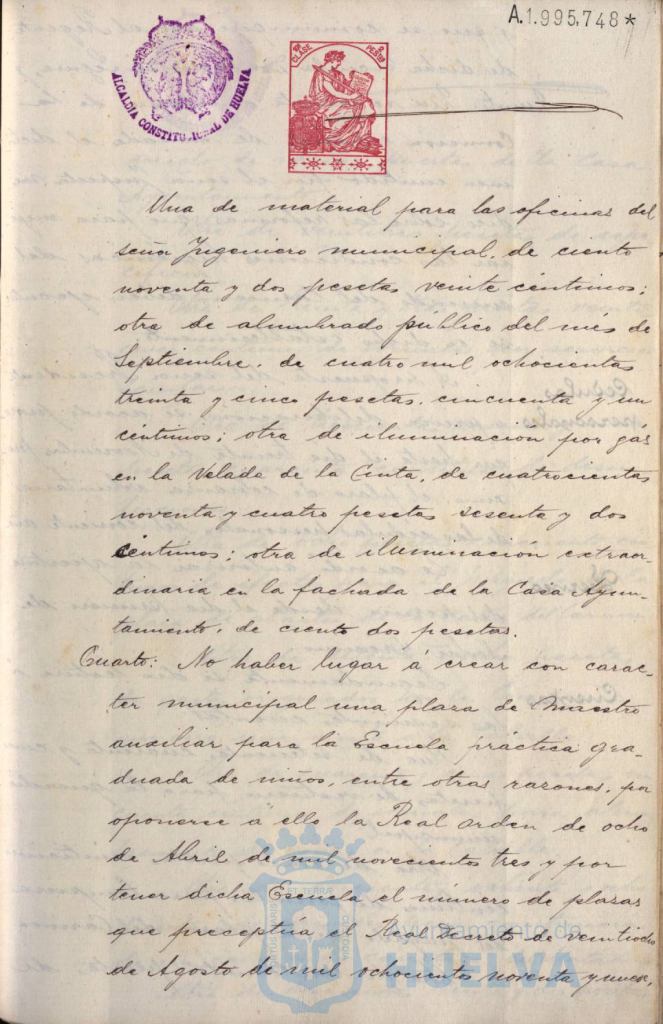 A.1.995,748*
ALCALDIA CONSTITUCIONAL DE HUELVA
CLASE
PESTAS
Una de material para las oficinas del
señor Ingeniero municipal, de ciento
noventa y dos pesetas veinte céntimos;
otra de alumbrado público del més de
Septiembre, de cuatro mil ochocientas
treinta y cinco pesetas, cincuenta y un
céntimos; otra de iluminación por gás
en la Velada de la Cinta, de cuatrocientas
noventa y cuatro pesetas sesenta y dos
céntimos; otra de iluminación extraor-
dinaria en la fachada de la Casa Ayun-
tamiento, de ciento dos pesetas.
Cuarto: No haber lugar á crear con carac-
ter municipal una plaza de Maestro
auxiliar para la Escuela práctica gra-
duada de niños, entre otras razones, por
oponerse á ello la Real orden de ocho
de Abril de mil novecientos tres y por
tener dicha Escuela el número de plazas
que preceptúa el Real Decreto de veintiocho
de Agosto de mil ochocientos noventa y nueve,
Ayuntamiento de
HUELVA